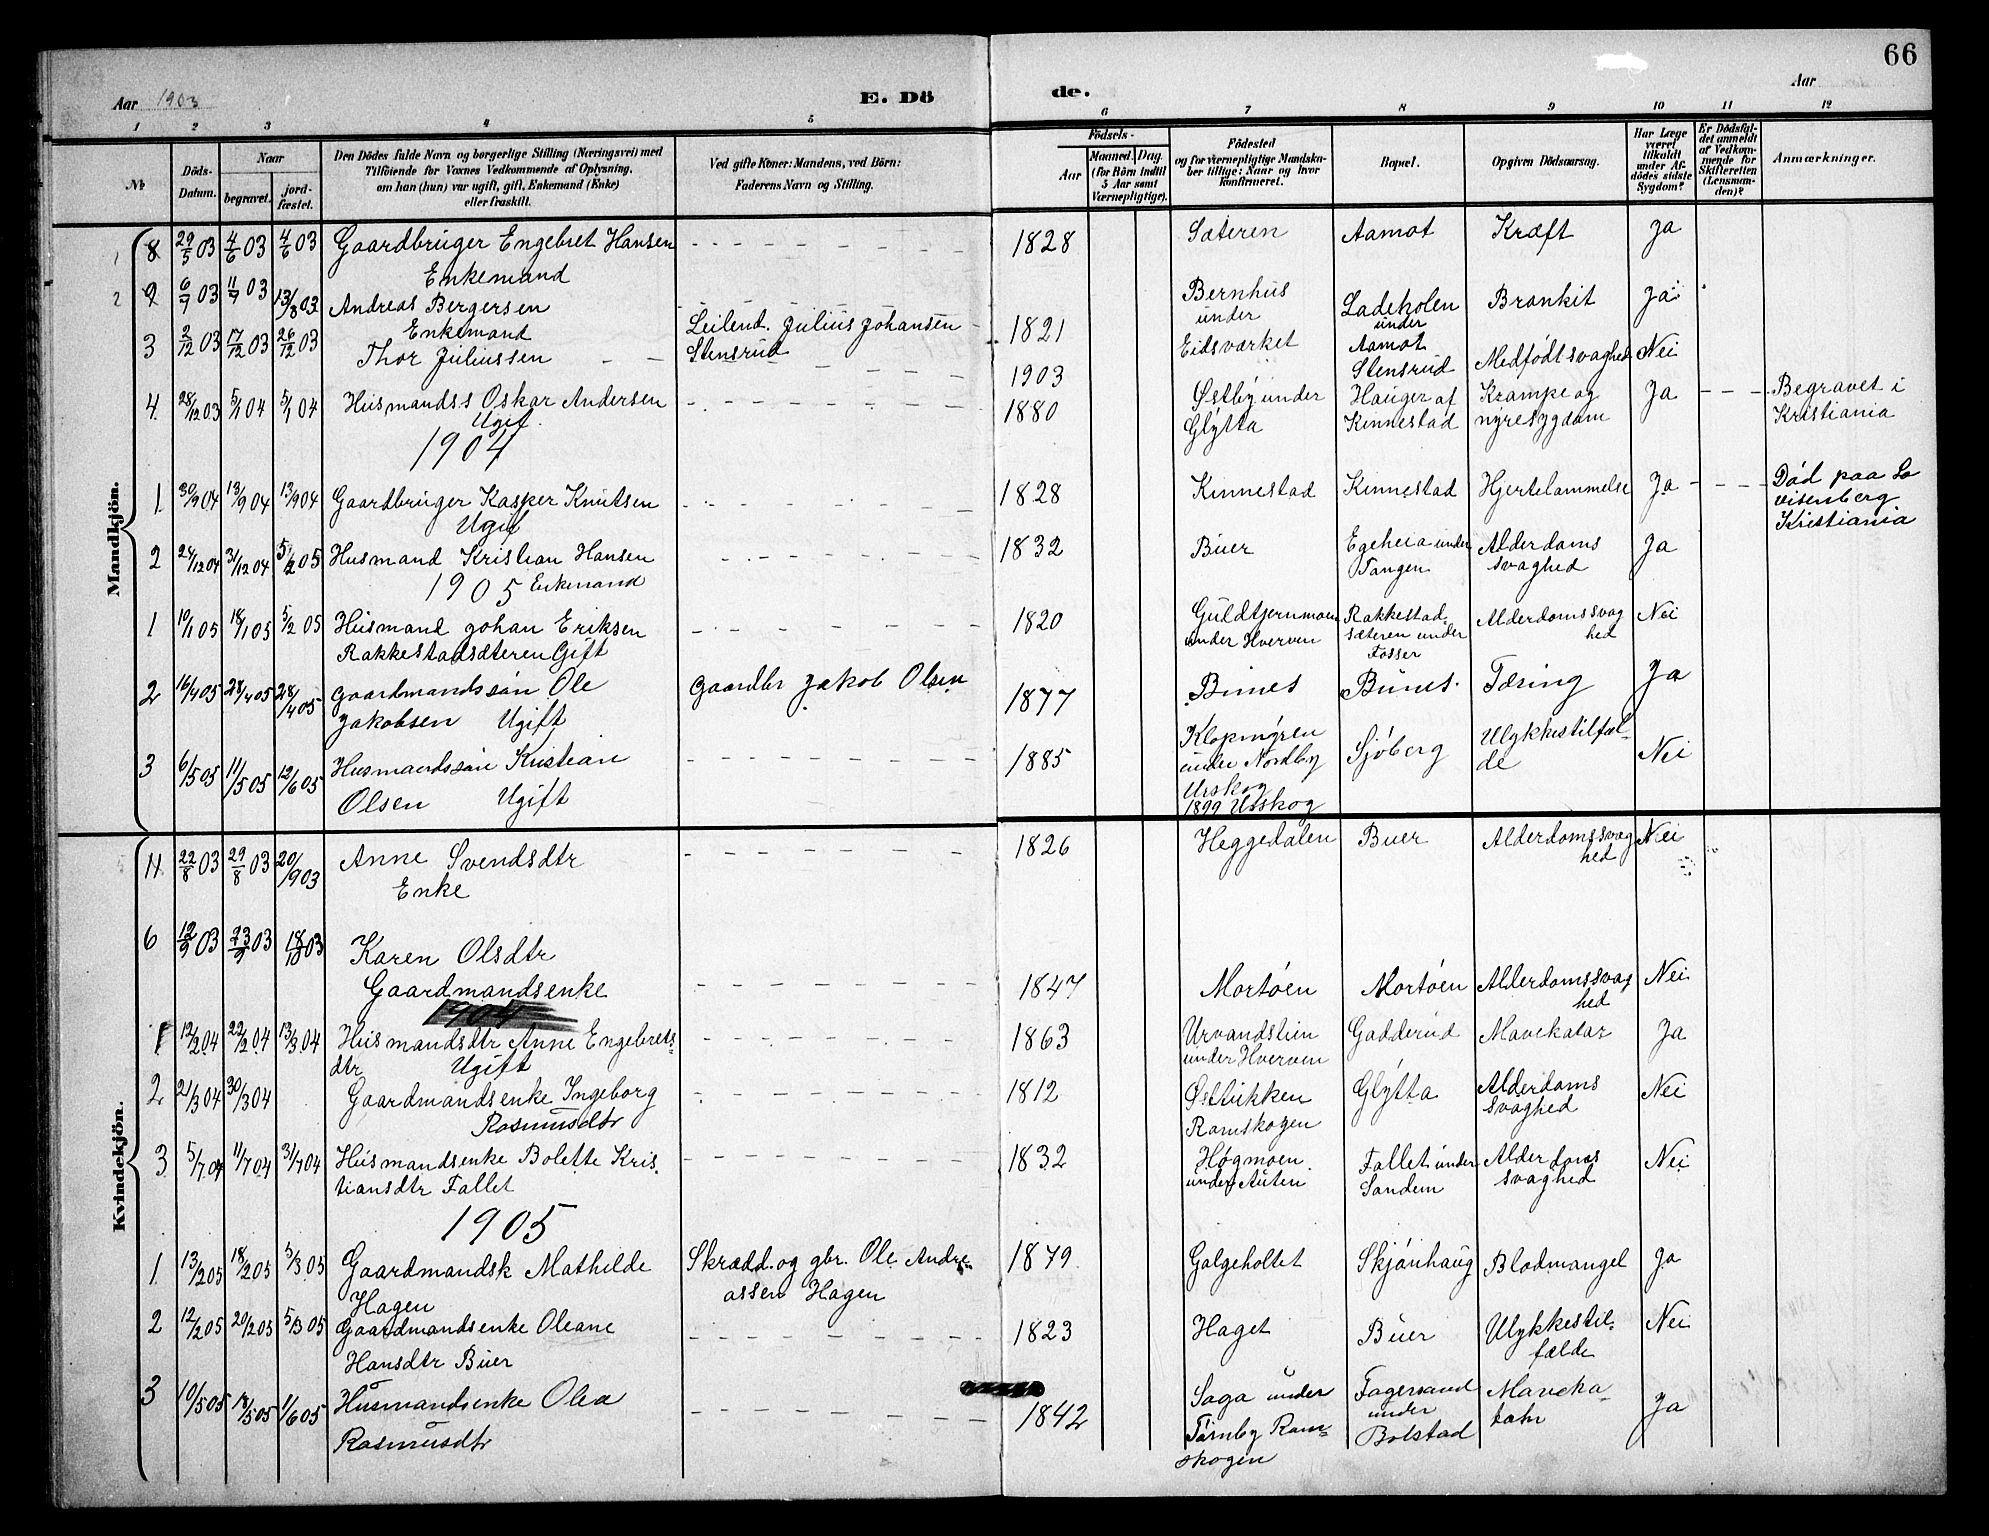 66
Aar 1903
E. Dö
de.
Aar
1 2 3 4 5 6 7 8 9 10 11 12
№
Döds-
Datum.
Naar
begravet.
jord-
fæstet.
Den Dödes fulde Navn og borgerlige Stilling (Næringsvei) med
Tilföiende for Voxnes Vedkommende af Oplysning,
om han (hun) var ugift, gift, Enkemand (Enke)
eller fraskilt.
Ved gifte Koner: Mandens, ved Börn:
Faderens Navn og Stilling.
Födsels-
Aar
Maaned. Dag.
(for Börn indtil
5 Aar samt
Værnepligtige).
Födested
og for værnepligtige Mandska-
ber tillige: Naar og hvor
konfirmeret.
Bopæl.
Opgiven Dödsaarsag.
Har Læge
været
tilkaldt
under Af-
dödes sidste
Sygdom?
Er Dödsfal-
det anmeldt
af Vedkom-
mende for
Skifteretten
(Lensman-
den)?
Anmærkninger.
Mandkjön.
1 8 29/5 03 4/6 03 4/6 03 Gaardbruger Engebret Hansen 1828 Sæteren Aamot Kræft Ja
Enkemand
2 9 6/7 03 11/7 03 13/8 03 Andreas Bergersen 1821 Bernhus Ladeholen Bronkit Ja
Enkemand under under
Eidsværket Aamot
3 2/12 03 17/12 03 26/12 03 Thor Juliussen Leilend. Julius Johansen 1903 Stensrud Medfødt svaghed Nei
Stensrud
4 28/12 03 5/1 04 5/1 04 Husmandss Oskar Andersen 1880 Østby under Hauger af Krampe og Ja Begravet i
Ugif. Glýtta Kinnestad nyresygdom Kristiania
1904
1 30/9 04 13/9 04 13/9 04 Gaardbruger Kasper Knutsen 1828 Kinnestad Kinnestad Hjertelammelse Ja Död paa Lo
Ugif visenberg
Kristiania
2 24/12 04 31/12 04 5/2 05 Husmand Kristian Hansen 1832 Buer Egeheia under Alderdoms Ja
1905 Enkemand Tangen svaghed
1 10/1 05 18/1 05 5/2 05 Husmand Johan Eriksen 1820 Guldtjernmoen Rakkestad- Alderdomssvag Nei
Rakkestadsæteren Gift under Hverven sæteren under hed
Fosser
2 16/4 05 28/4 05 28/4 05 Gaardmandssön Ole Gaardbr Jakob Olsen 1877 Bunes Bunes Tæring Ja
Jakobsen Ugift
3 6/5 05 11/5 05 12/6 05 Husmandssön Kristian 1885 Klopmýren Sjöberg Ulykkestilfæl- Nei
Olsen Ugift under Nordby de
Urskog
1899 Urskog
Kvindekjön.
22/8 03 29/8 03 20/9 03 Anne Svendsdtr 1826 Heggedalen Buer Alderdomssvag Nei
Enke hed
6 12/9 03 23/9 03 18/10 03 Karen Olsdtr
Gaardmandsenke 1847 Mortöen Mortöen Alderdomssvag Nei
hed
1904
1 12/2 04 22/2 04 13/3 04 Husmandsdtr Anne Engebrets- 1863 Urvandslien Gadderud Mavekatar Ja
dtr Ugift under Hverven
2 21/3 04 30/3 04 Gaardmandsenke Ingeborg 1812 Østtukken Glýtta Alderdoms Nei
Rasmusdtr Romskogen svaghed
3 5/7 04 11/7 04 31/7 04 Husmandsenke Bolette Kris- 1832 Högmoen Fallet under Alderdoms Nei
tiansdtr Fallet under Auten Sandem svaghed
1905
1 13/2 05 18/2 05 5/3 05 Gaardmandsk Mathilde Skrædd. og gbr. Ole Andre- 1879 Galgeholtet Skjönhaug Blodmangel Ja
Hagen assen Hagen
2 12/2 05 20/2 05 5/3 05 Gaardmandsenke Oleane 1823 Haget Buer Ulykkestil- Nei
Hansdtr Buer fælde
3 10/5 05 18/5 05 11/6 05 Husmandsenke Olea 1842 Saga under Fagersand Maveka- Ja
Rasmusdtr Törnby Rom- under tahr
skogen Bolstad